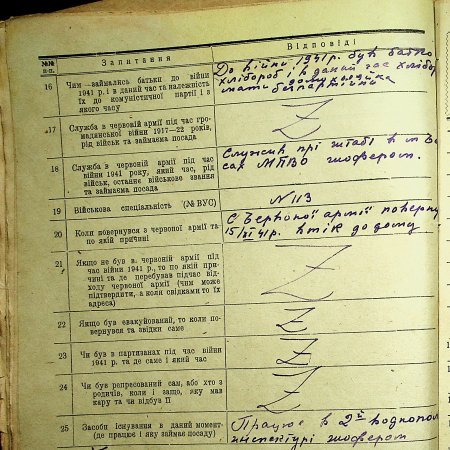 №№ п-п.
Запитання
Відповіді
16
Чим займались батьки до війни
1941 р. і в даний час та належність
їх до комуністичної партії і з
якого часу
До війни 1941 р. був батько
хлібороб і в даний час хлібор
мати домохазяйка
безпартійні
17
Служба в червоній армії під час гро-
мадянської війни 1917—22 років,
рід військ та займаєма посада
Z
18
Служба в червоній армії під час
війни 1941 року, який час, рід
військ, останнє військове звання
та займаєма посада
Служив при штабі в м
МПВО шофером.
19
Військова спеціальність (№ ВУС)
№ 113
20
Коли повернувся з червоної армії та
по якій причині
С Червоної армії поверну
15/ІХ 41р. втік до дому
21
Якщо не був в червоній армії під
час війни 1941 р., то по якій при-
чині та де перебував підчас від-
ходу червоної армії (чим може
підтвердити, а коли свідками то їх
адреса)
Z
22
Якщо був евакуйований, то коли по-
вернувся та звідки саме
Z
23
Чи був в партизанах під час війни
1941 р. та де саме і який час
Z
24
Чи був репресований сам, або хто з
родичів, коли і защо, яку мав
кару та чи відбув її
Z
25
Засоби існування в даний момент
(де працює і яку займає посаду)
Працює в 2й водопо
шофером